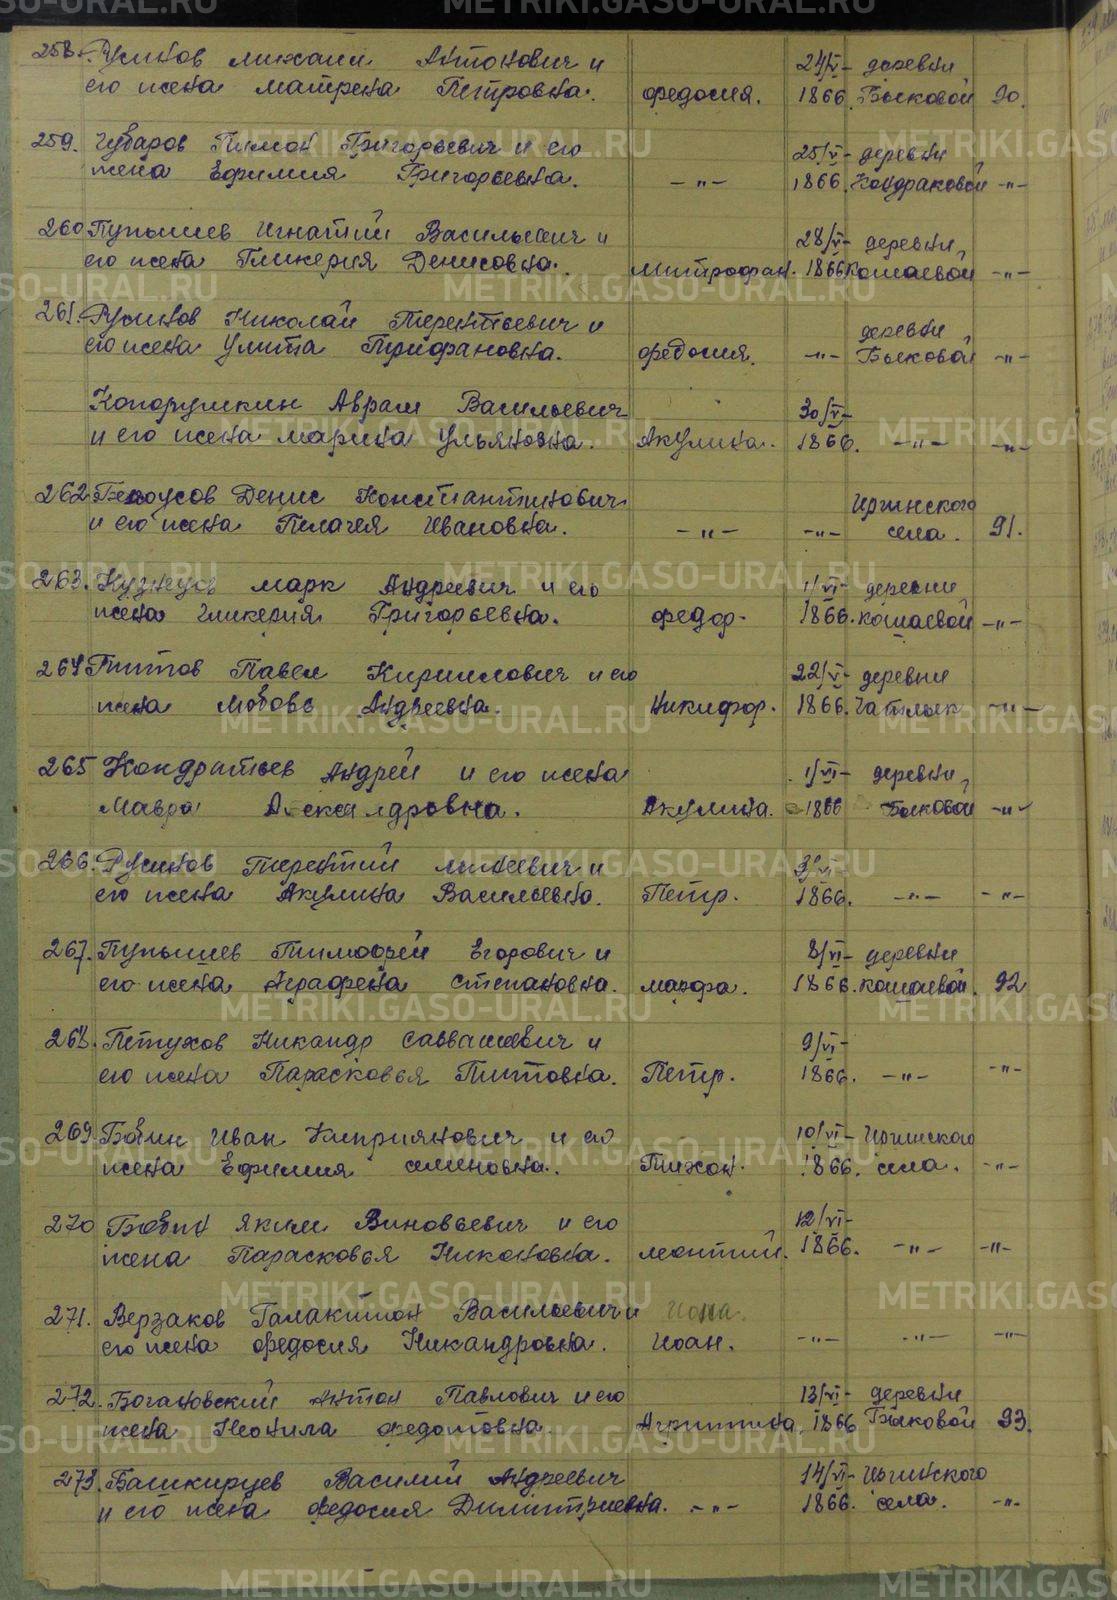 258. Русинов Михаил Антонович и 24/V- деревни
его жена Матрена Петровна. Федосия. 1866. Быковой 90.
259. Чубаров Пимон Григорьевич и его 25/V- деревни
жена Ефимия Григорьевна. -"- 1866. Кондраковой -"-
260 Пупышев Игнатий Васильевич и 28/V- деревни
его жена Гликерия Денисовна. Митрофан. 1866 Кошаевой -"-
261. Русинов Николай Терентьевич и деревни
его жена Улита Трифановна. Федосия. -"- Быковой -"-
Копорушкин Аврам Васильевич 30/V-
и его жена Марина Ульяновна. Акулина. 1866. -"- -"-
262 Белоусов Денис Константинович Иргинского
и его жена Пелагея Ивановна. -"- -"- села. 91.
263. Кузнецов Марк Андреевич и его 1/VI- деревни
жена Гликерия Григорьевна. Федор. 1866. Кошаевой -"-
264 Титов Павел Кириллович и его 22/V- деревни
жена Любовь Андреевна. Никифор. 1866. Чатлык -"-
265 Кондратьев Андрей и его жена 1/VI- деревни
Мавра Александровна. Акулина. 1866 Быковой -"-
266. Русинов Терентий Михеевич и 3/VI-
его жена Акулина Васильевна. Петр. 1866. -"- -"-
267. Пупышев Тимофей Егорович и 8/VI- деревни
его жена Аграфена Степановна. Марфа. 1866. Кошаевой. 92
268. Петухов Никандр Савватеевич и 9/VI-
его жена Парасковья Титовна. Петр. 1866. -"- -"-
269. Бабин Иван Киприянович и его 10/VI- Иргинского
жена Ефимия Семеновна. Тихон. 1866. села. -"-
270 Бабин Яким Зиновьевич и его 12/VI-
жена Парасковья Никоновна. Леонтий. 1866. -"- -"-
271. Верзаков Галактион Васильевич и Иона.
его жена Федосия Никандровна. Иоан. -"- -"- -"-
272. Богановский Антон Павлович и его 13/VI- деревни
жена Неонила Федотовна. Агриппина. 1866 Быковой 93.
273. Башкирцев Василий Андреевич 14/VI- Иргинского
и его жена Федосия Димитриевна. -"- 1866. села. -"-
METRIKI.GASO-URAL.RU